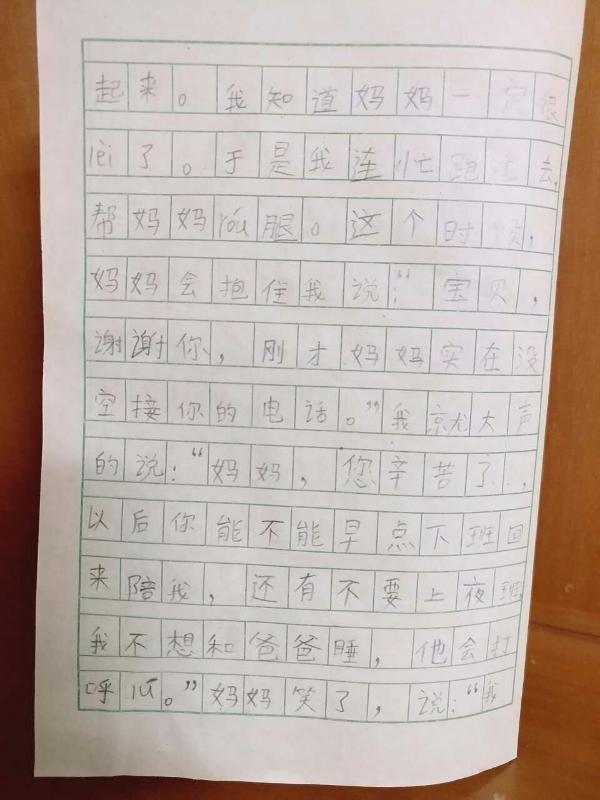 起来。我知道妈妈一定很
lèi了。于是我连忙跑过去,
帮妈妈róu腿。这个时候,
妈妈会抱住我说:“宝贝,
谢谢你,刚才妈妈实在没
空接你的电话。”我就大声
的说:“妈妈,您辛苦了!,
以后你能不能早点下班回
来陪我,还有不要上夜班,
我不想和爸爸睡,他会打
呼lú。”妈妈笑了,说:“我